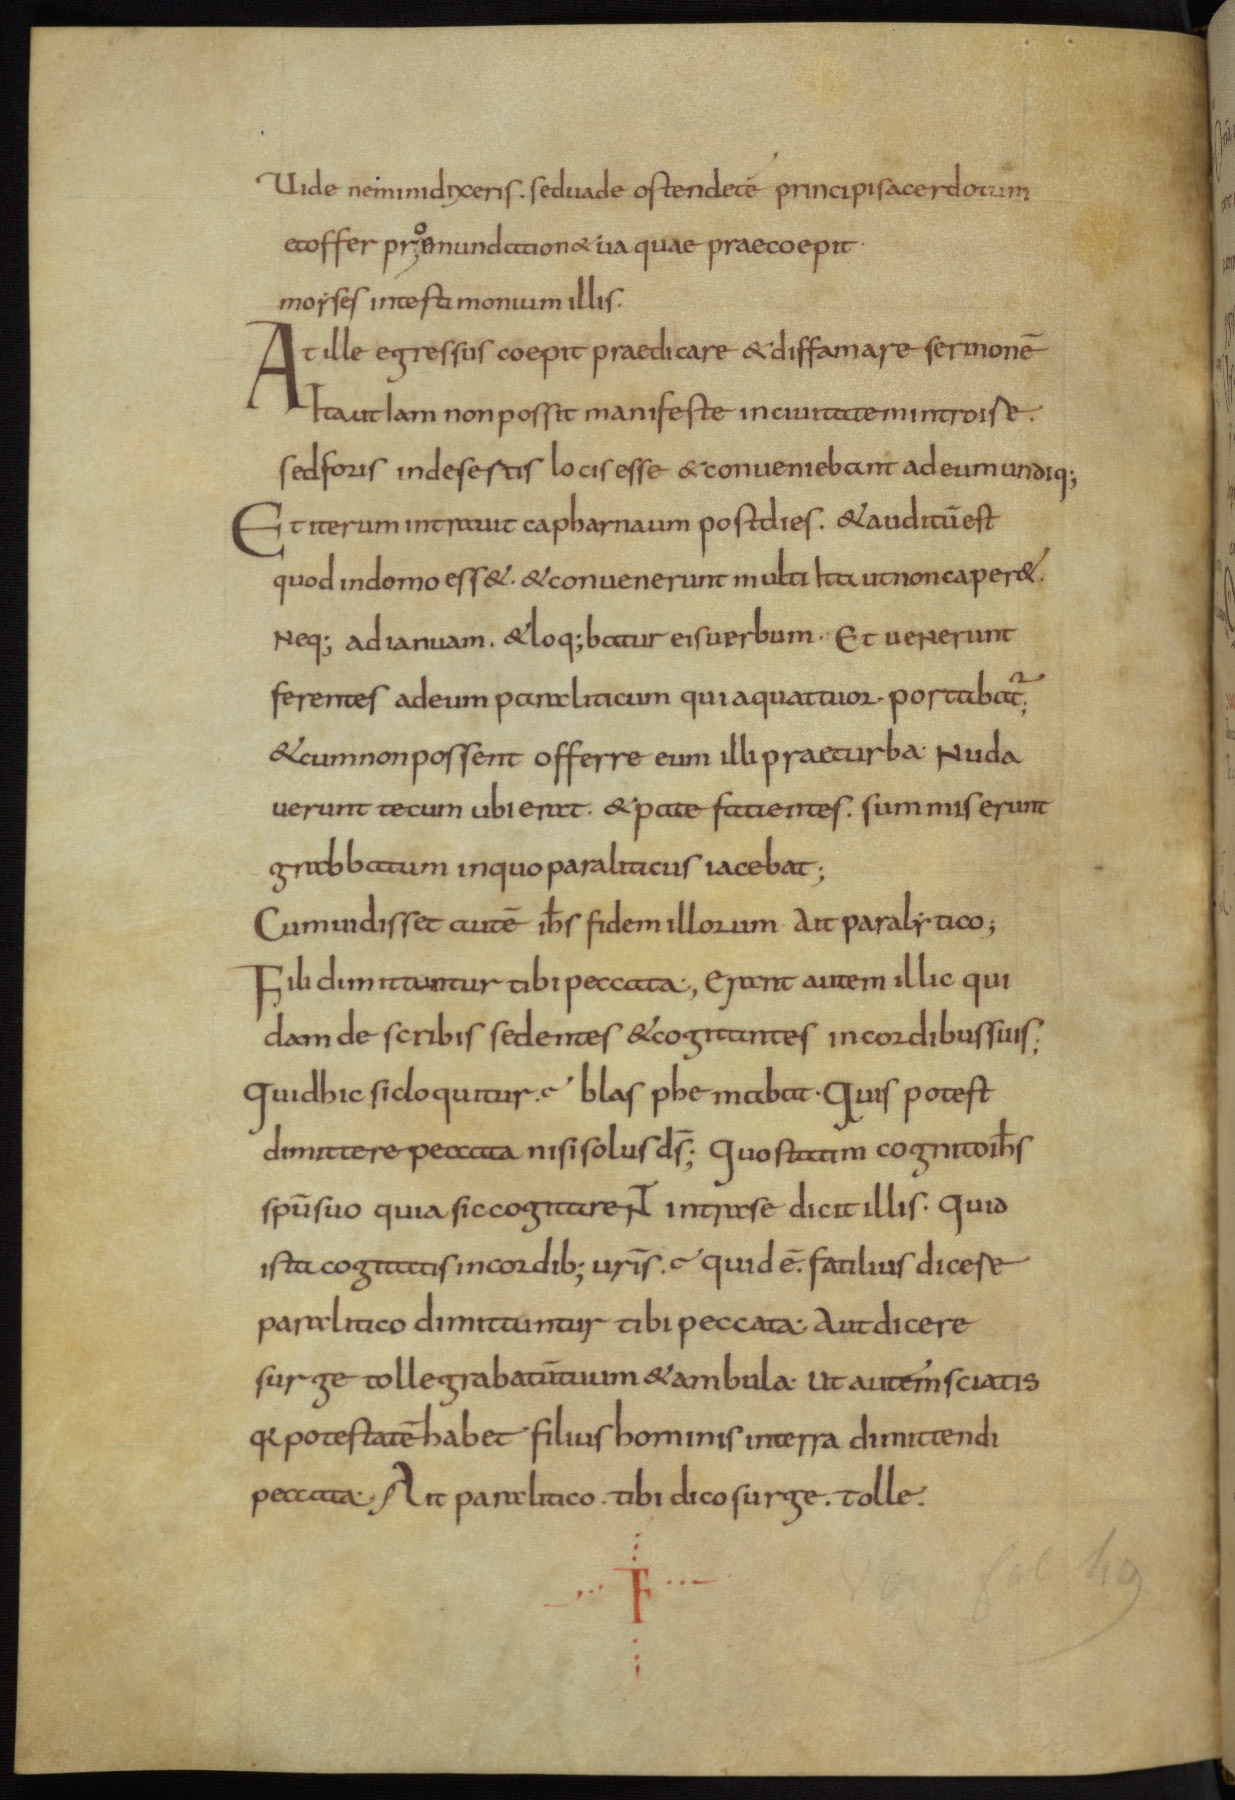 Uide nemini dixeris. sed uade ostende tē principi sacerdotum
et offer pro emundation& tua quae praecoepit.
moÿses in testimonium illis.
At ille egressus coepit praedicare & diffamare sermonē
Ita ut Iam non possit manifeste in ciuitatem introise.
sed foris in desestis locis esse & conueniebant ad eum undiq;
Et iterum intrauit capharnaum post dies. & auditū est
quod in domo ess&. & convenerunt multi Ita ut non caper&.
Neq; ad ianuam. & loq;batur eis verbum. Et uenerunt
ferentes ad eum paraliticum qui a quattuor. portabat²;
& cum non possent offerre eum illi prae turba. Nuda
uerunt tecum ubi erat. & pate facientes. summiserunt
grabbatum in quo paraliticus iacebat;
Cum uidisset autē ih̄s fidem illorum. Ait paralÿtico;
Fili dimittuntur tibi peccata., Erant autem illic qui
dam de scribis sedentes & cogitantes in cordibus suis;
Quid hic sic loquitur. blasphemabat. Quis potest
dimittere peccata nisi solus d̄s; Quo statim cognito ih̄s
spū suo quia sic cogitarent intra se dicit illis. Quid
ista cogitatis in cordib; ur̄is. quid ē. facilius dicese
paralitico dimittuntur tibi peccata. Aut dicere
surge tolle grabatū tuum & ambula. Ut autem sciatis
potestatē habet filius hominis in terra dimittendi
peccata. Ait paralitico. tibi dico surge. tolle.
F